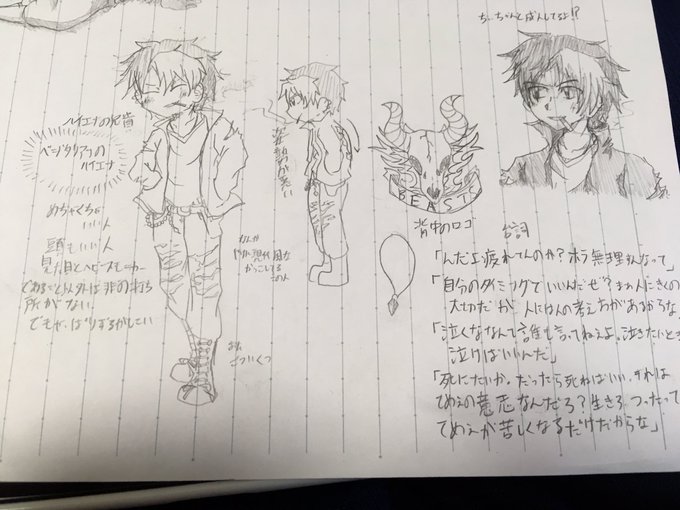 ちぃちゃんとばんしてるよ!?
ハイエナの兄貴
ベジタリアンの
ハイエナ
めちゃくちゃ
いい人
頭もいい人
見た目とヘビースモーカー
であること以外は非の打ち
所がない。
でもやっぱりずるがしこい
姿勢が悪い
なんか
やたら現代風な
かっこしてる
この人
ごついくつ
BEAST
背中のロゴ
台詞
「んだよ疲れてんのか?ホラ無理すんなって」
「自分のタイミングでいいんだぜ?まぁ人にきくの
大切だが、人には人の考え方があるからな」
「泣くななんて誰も言ってねぇよ。泣きたいとき
泣けばいいんだ」
「死にたいか。だったら死ねばいい。それは
てめぇの意志なんだろ?生きろっつったって
てめぇが苦しくなるだけだからな」